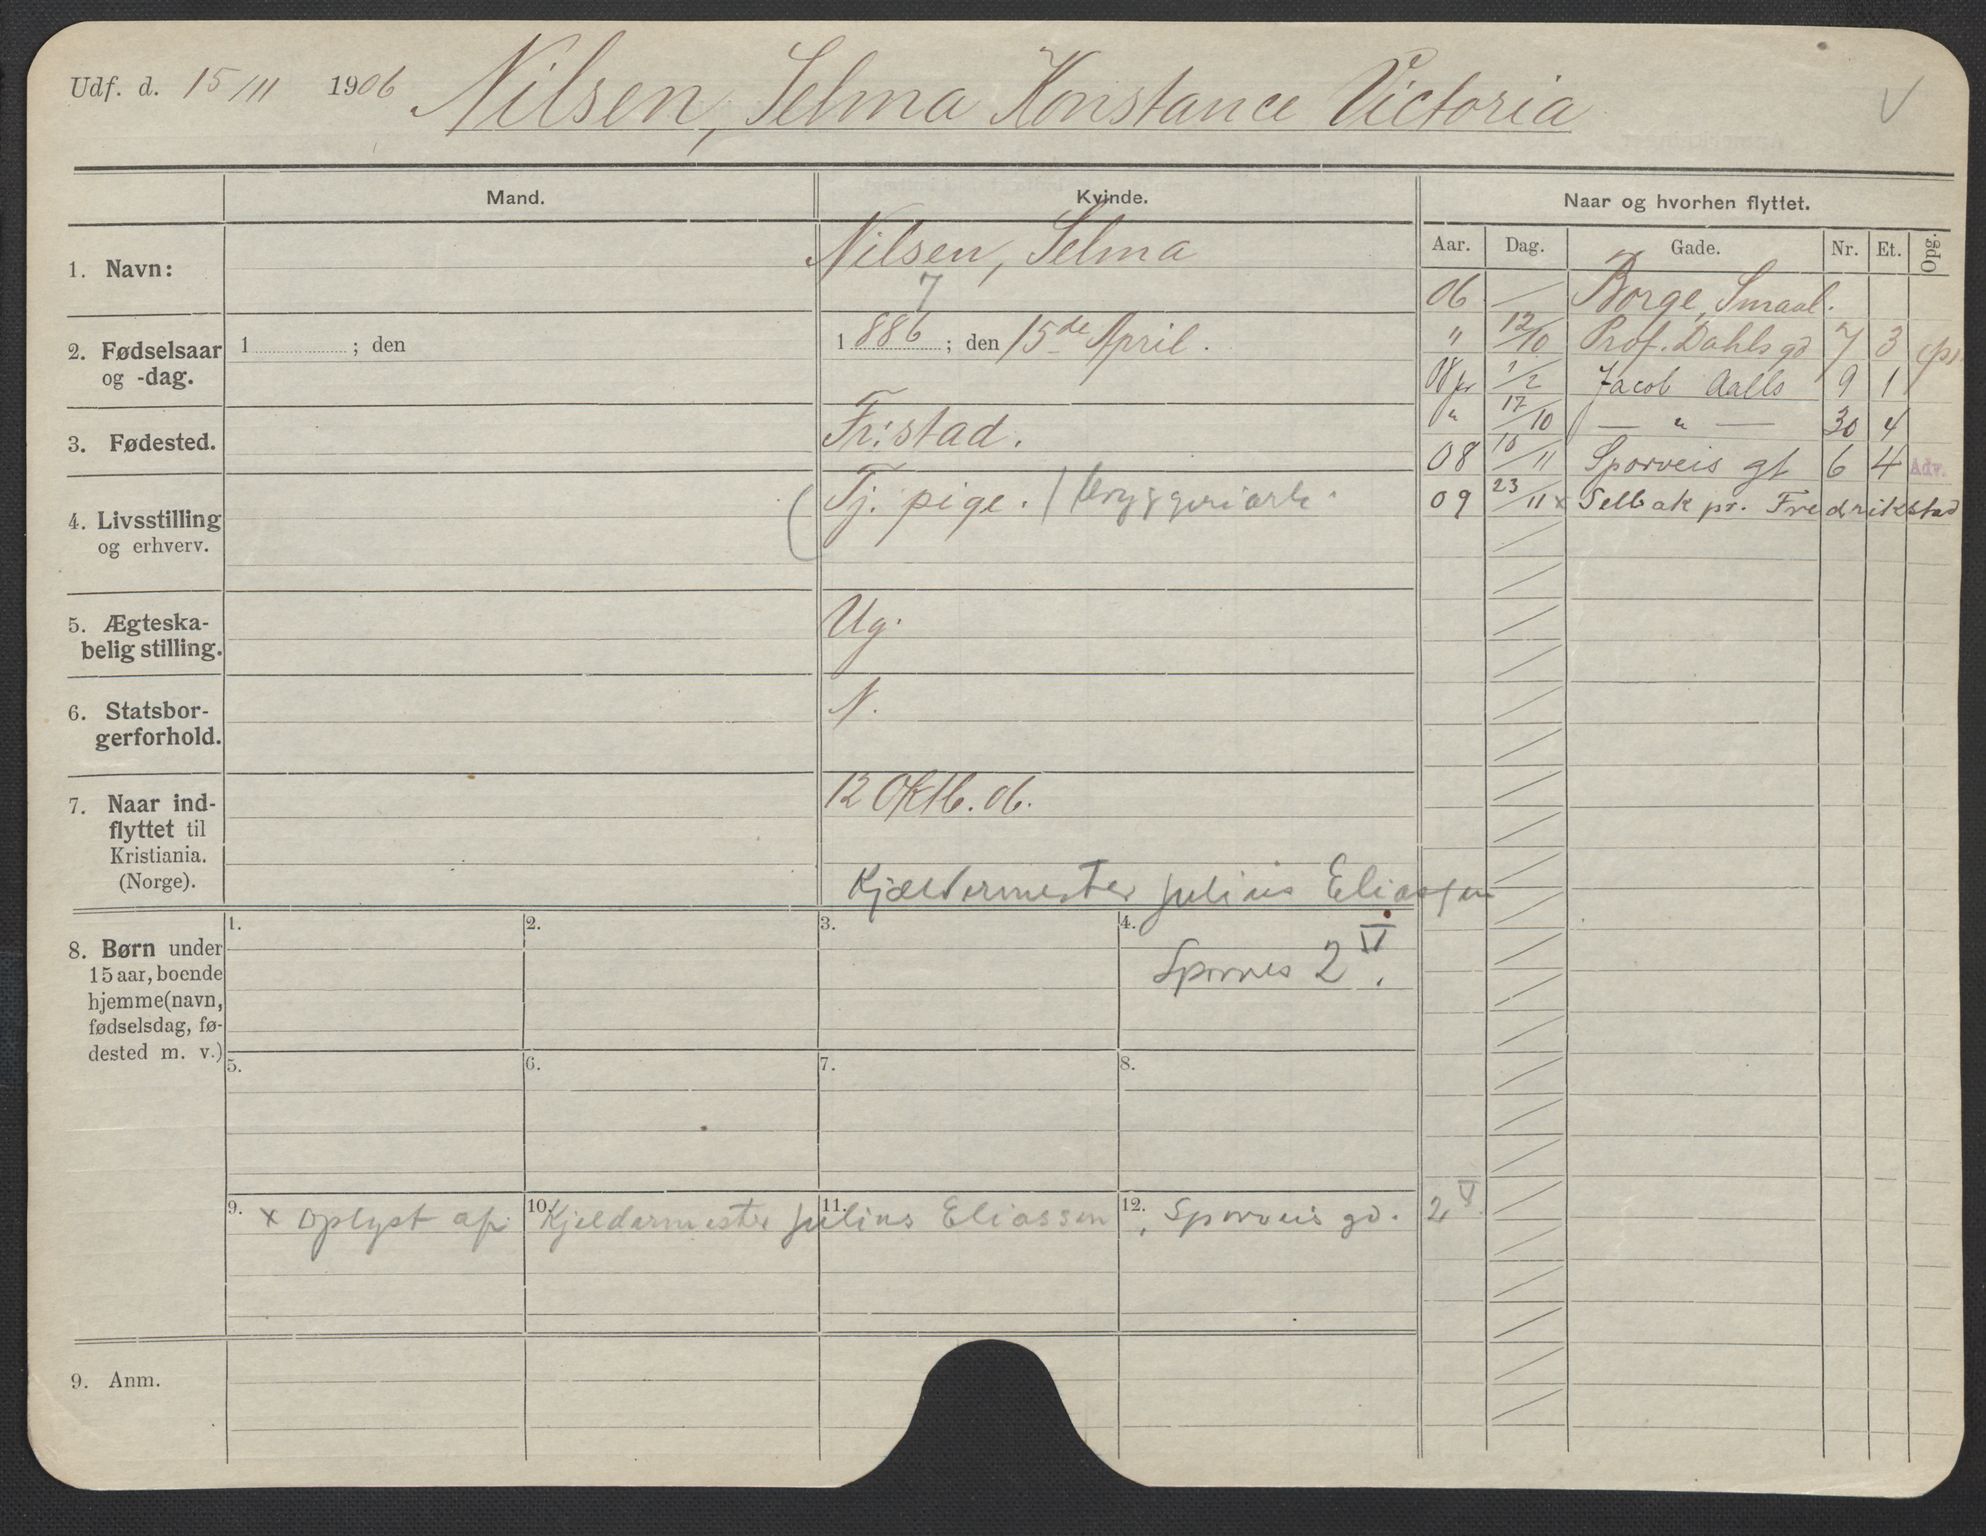 Udf. d. 15/III 1906 Nilsen, Selma Konstance Victoria
V
Mand. Kvinde. Naar og hvorhen flyttet.
Aar. Dag. Gade. Nr. Et. Opg.
1. Navn: Nilsen, Selma
7
2. Fødselsaar og -dag. 1 ; den 1886 ; den 15de April.
3. Fødested. Fr:stad.
4. Livsstilling og erhverv. (Tj. pige. / bryggeriarb.
5. Ægteska-
belig stilling. Ug.
6. Statsbor-
gerforhold. N.
7. Naar ind-
flyttet til
Kristiania.
(Norge). 12 Oktb. 06.
Kjeldermester Julius Eliassen
Sporveis 2 V.
06 — Borge, Smaal.
" 12/10 Prof. Dahls gd 7 3
08 pr 1/2 Jacob Aalls 9 1
" 17/10 — " — 30 4
08 10/11 Sporveis gt 6 4 Adv.
09 23/11 x Selbak pr. Fredrikstad
8. Børn under
15 aar, boende
hjemme (navn,
fødselsdag, fø-
dested m. v.)
1. 2. 3. 4.
5. 6. 7. 8.
9. 10. 11. 12.
x Oplyst af Kjeldermester Julius Eliassen, Sporveis gd. 2 V.
9. Anm.